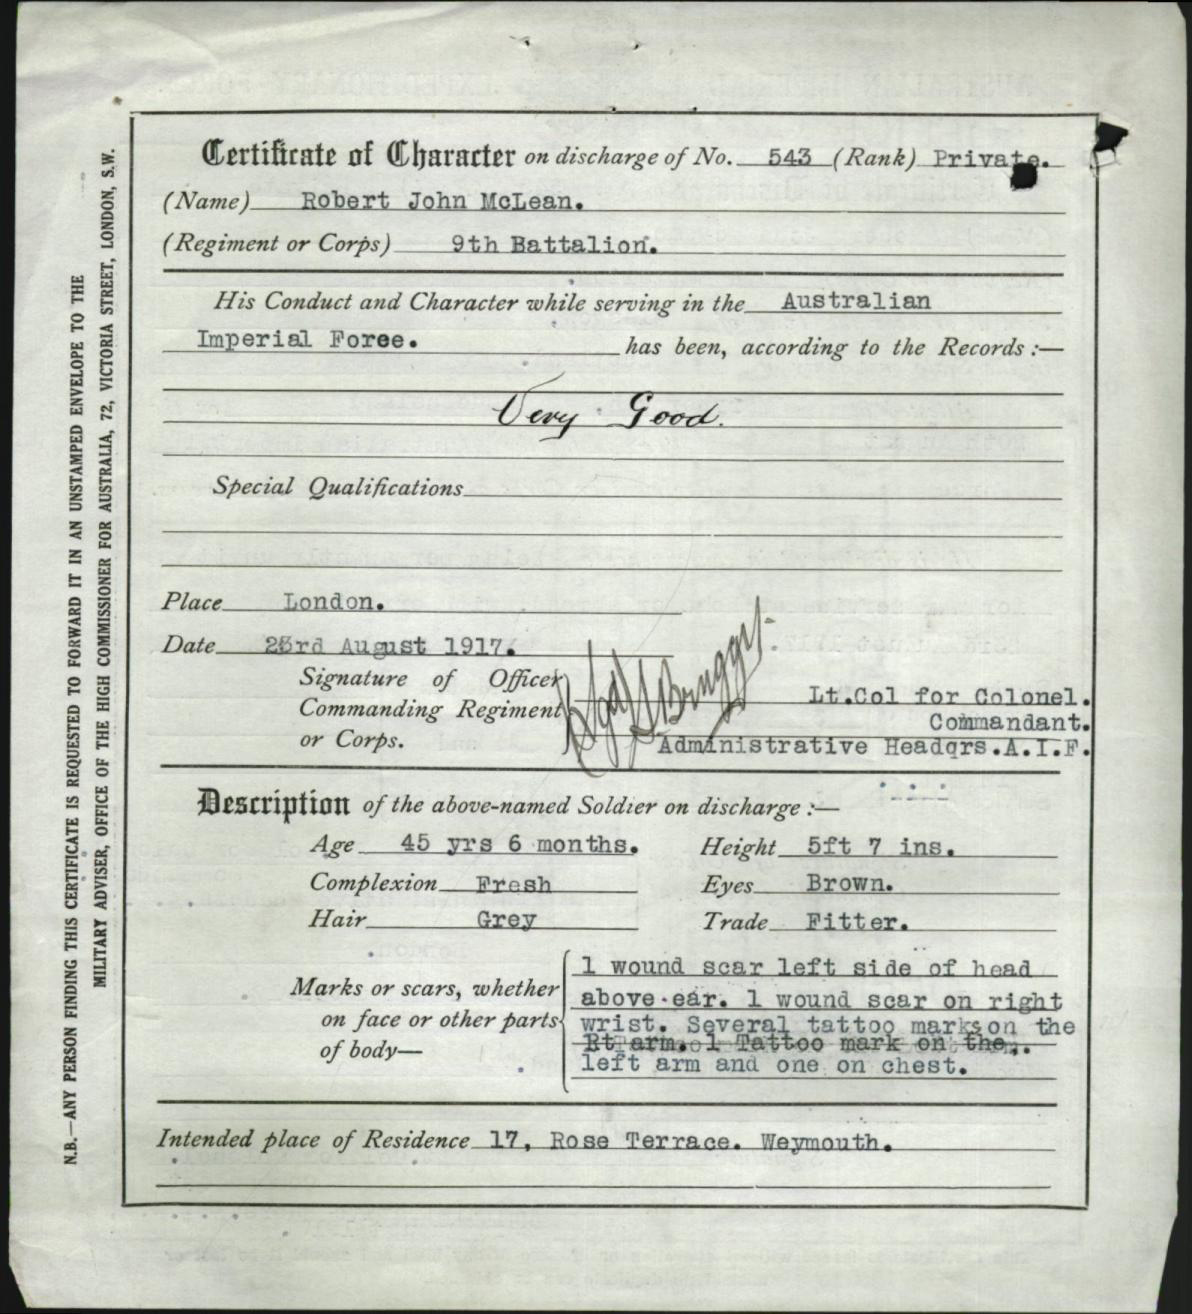 Certificate of Character on discharge of No. 543 (Rank) Private.
(Name) Robert John McLean.
(Regiment or Corps) 9th Battalion.
His Conduct and Character while serving in the Australian
Imperial Foree. has been, according to the Records :—
Very Good.
Special Qualifications
Place London.
Date 23rd August 1917.
Signature of Officer
Commanding Regiment
or Corps.
Lt.Col for Colonel.
Commandant.
Administrative Headqrs.A.I.F.
Description of the above-named Soldier on discharge :—
Age 45 yrs 6 months. Height 5ft 7 ins.
Complexion Fresh Eyes Brown.
Hair Grey Trade Fitter.
Marks or scars, whether
on face or other parts
of body—
1 wound scar left side of head
above ear. 1 wound scar on right
wrist. Several tattoo marks on the
Rt arm. 1 Tattoo mark on the
left arm and one on chest.
Intended place of Residence 17, Rose Terrace. Weymouth.
N.B.—ANY PERSON FINDING THIS CERTIFICATE IS REQUESTED TO FORWARD IT IN AN UNSTAMPED ENVELOPE TO THE
MILITARY ADVISER, OFFICE OF THE HIGH COMMISSIONER FOR AUSTRALIA, 72, VICTORIA STREET, LONDON, S.W.